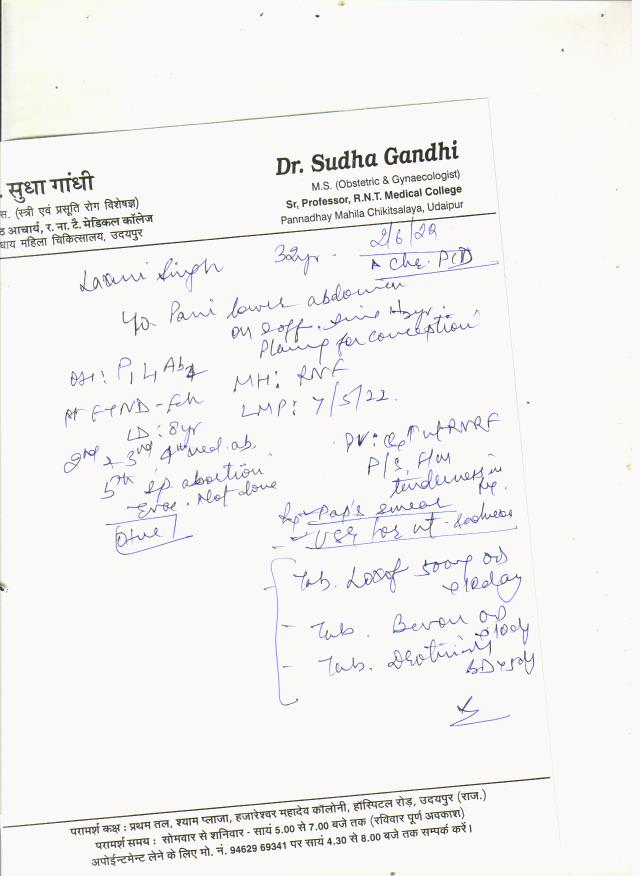 . सुधा गांधी
स. (स्त्री एवं प्रसूति रोग विशेषज्ञ)
ठ आचार्य, र. ना. टै. मेडिकल कॉलेज
धाय महिला चिकित्सालय, उदयपुर
Dr. Sudha Gandhi
M.S. (Obstetric & Gynaecologist)
Sr, Professor, R.N.T. Medical College
Pannadhay Mahila Chikitsalaya, Udaipur
Laxmi Singh 32yr. 2/6/22
PID
Pain lower abdomen
on & off. since
Planing for conception
MH: RNF
FTND - Fch LMP: 7/5/22.
LD: 8yr
2nd 3rd 4th med. ab.
5th sp. abortion
Evac. Not done
PV:
P/S,
tenderness in
Pap's smear
USG for ut
Tab. 500mg OD
x 10day
- Tab. Bevon OD
x 10dy
- Tab.
BD x 5dy
परामर्श कक्ष : प्रथम तल, श्याम प्लाजा, हजारेश्वर महादेव कॉलोनी, हॉस्पिटल रोड़, उदयपुर (राज.)
परामर्श समय : सोमवार से शनिवार - सायं 5.00 से 7.00 बजे तक (रविवार पूर्ण अवकाश)
अपोईन्टमेन्ट लेने के लिए मो. नं. 94629 69341 पर सायं 4.30 से 8.00 बजे तक सम्पर्क करें।